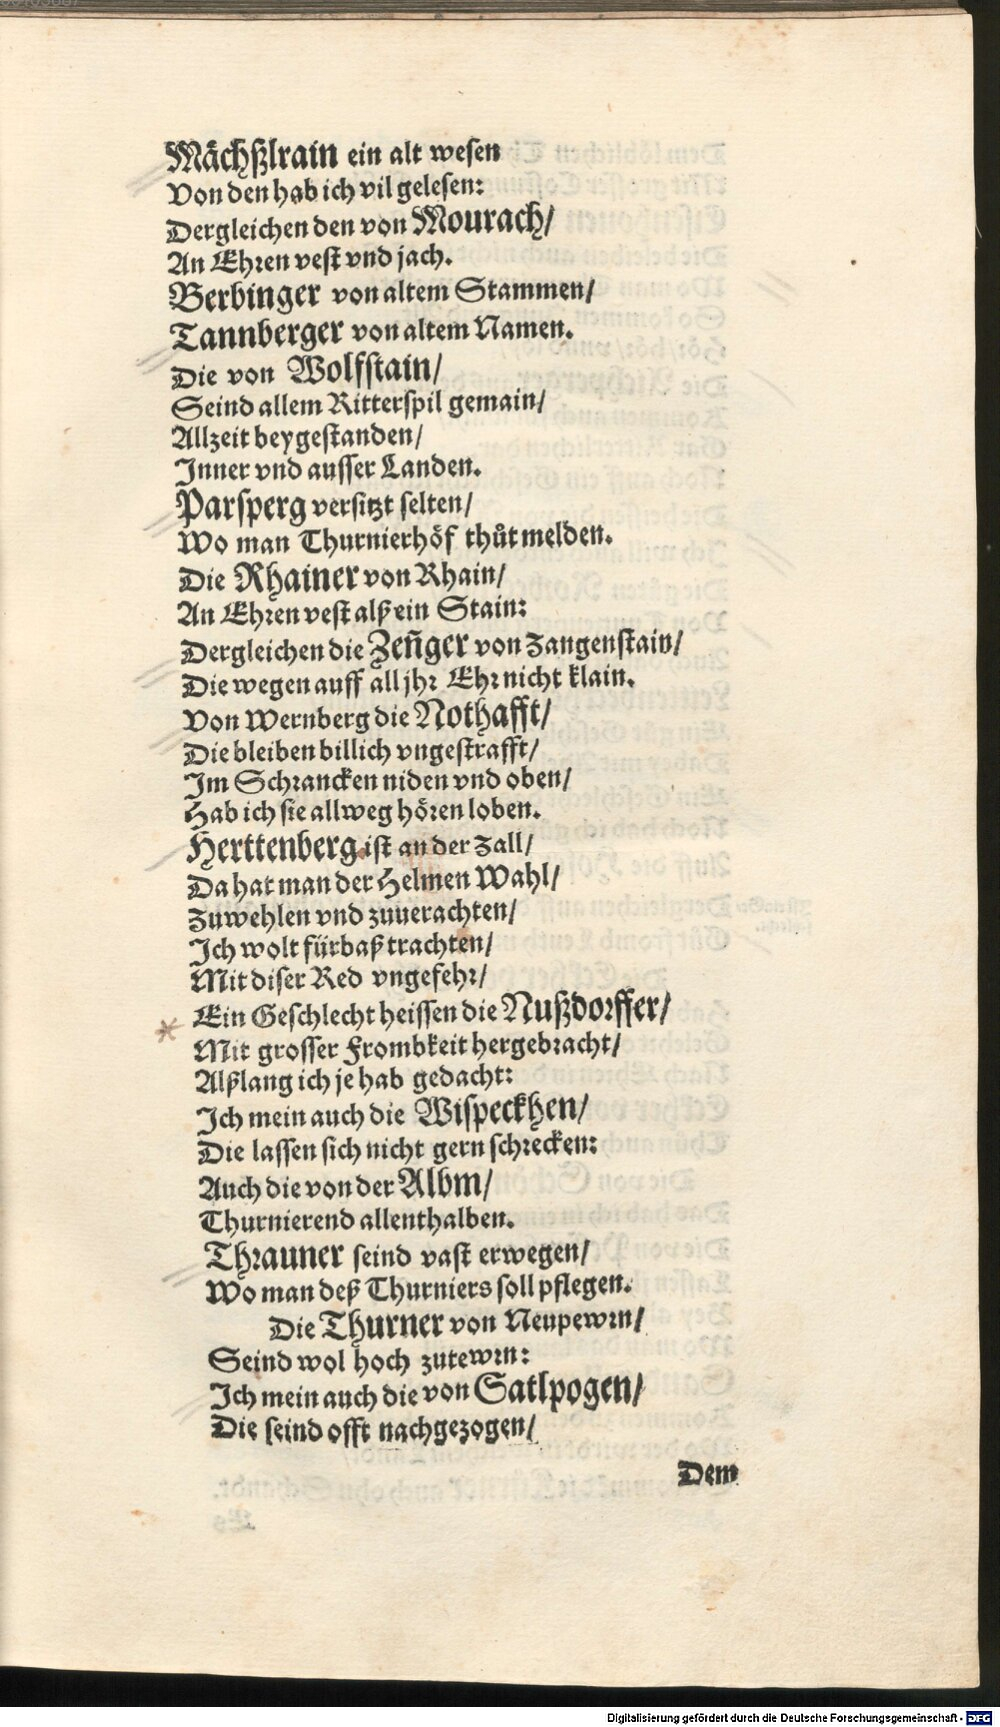 Mächßlrain ein alt wesen
Von den hab ich vil gelesen:
Dergleichen den von Mourach/
An Ehren vest vnd jach.
Berbinger von altem Stammen/
Tannberger von altem Namen.
Die von Wolfstain/
Seind allem Ritterspil gemain/
Allzeit beygestanden/
Inner vnd ausser Landen.
Parsperg versitzt selten/
Wo man Thurnierhöf thůt melden.
Die Rhainer von Rhain/
An Ehren vest alß ein Stain:
Dergleichen die Zeñger von Zangenstain/
Die wegen auff all jhr Ehr nicht klain.
Von Wernberg die Nothafft/
Die bleiben billich vngestrafft/
Im Schrancken niden vnd oben/
Hab ich sie allweg hören loben.
Herttenberg ist an der Zall/
Da hat man der Helmen Wahl/
Zuwehlen vnd zuuerachten/
Ich wolt fürbaß trachten/
Mit diser Red vngefehr/
Ein Geschlecht heissen die Nußdorffer/
Mit grosser Frombkeit hergebracht/
Alßlang ich je hab gedacht:
Ich mein auch die Wispeckhen/
Die lassen sich nicht gern schrecken:
Auch die von der Albm/
Thurnierend allenthalben.
Thrauner seind vast erwegen/
Wo man deß Thurniers soll pflegen.
Die Thurner von Neupewrn/
Seind wol hoch zutewrn:
Ich mein auch die von Satlpogen/
Die seind offt nachgezogen/
Dem
Digitalisierung gefördert durch die Deutsche Forschungsgemeinschaft - DFG